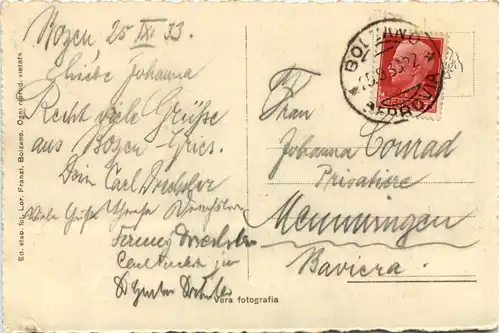 Bozen, 25 IX. 33.
Liebe Johanna
Recht viele Grüße
aus Bozen Gries.
Dein Carl Drechsler
Viele Grüße Therese Drechsler
Drechsler
Carl jun
Dr Günter
Frau
Johanna Conrad
Privatiere
Memmingen
Baviera.
BOLZANO
25.9.33.22
FERROVIA
Ed. stab. fot. Lor. Franzl, Bolzano. Ogni riprod. vietata
Vera fotografia